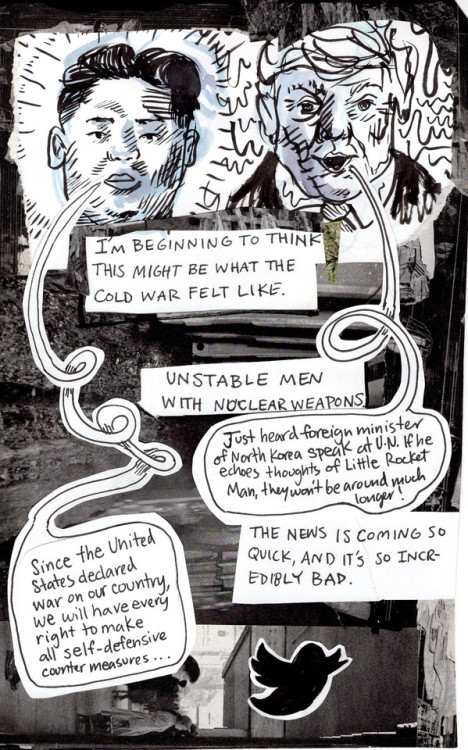 I'M BEGINNING TO THINK
THIS MIGHT BE WHAT THE
COLD WAR FELT LIKE.
UNSTABLE MEN
WITH NUCLEAR WEAPONS
Just heard foreign minister
of North Korea speak at U.N. If he
echoes thoughts of Little Rocket
Man, they won't be around much
longer!
THE NEWS IS COMING SO
QUICK, AND IT'S SO INCR-
EDIBLY BAD.
Since the United
States declared
war on our country,
we will have every
right to make
all self-defensive
counter measures...